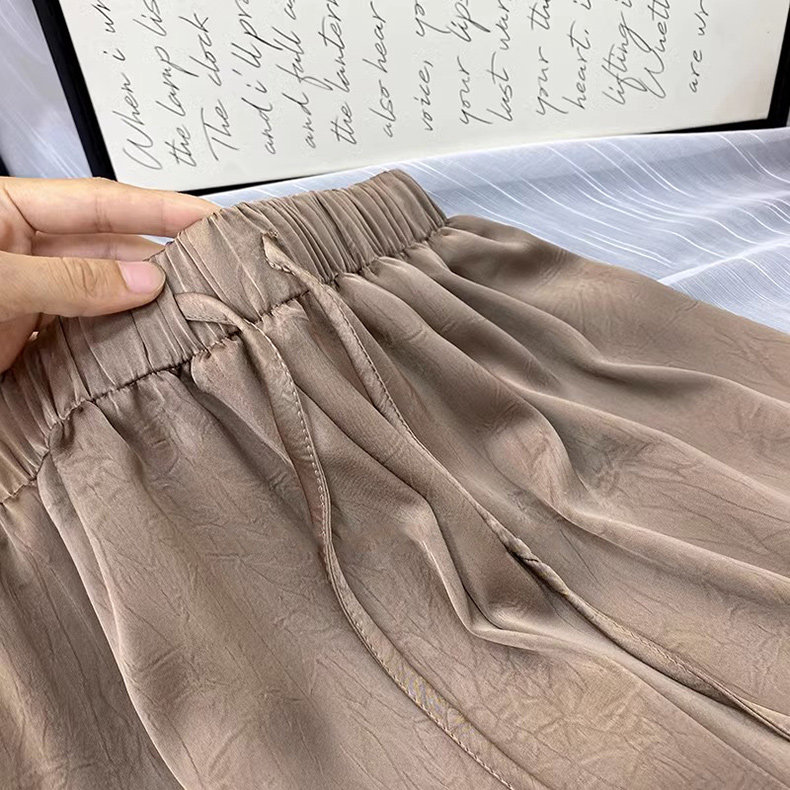 When i wr
the lamp lis
The clock
and i'll pra
and full a
the lantern
also hear
voice, yo
your lips
last war
your th
heart. i
lifting i
Whethe
are wr